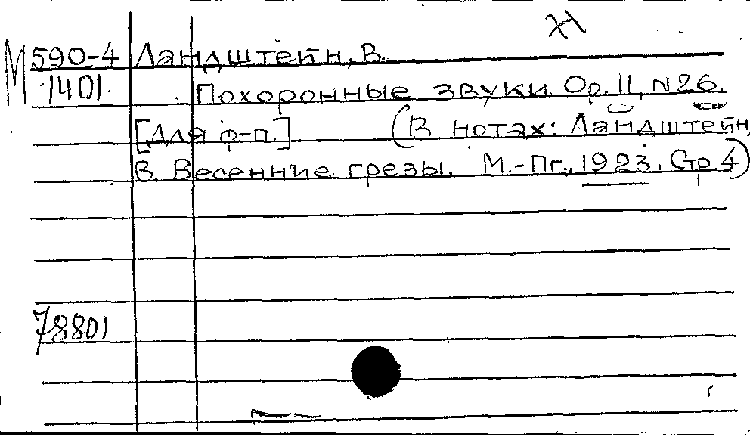 М 590-4 Ландштейн, В.
1401 Похоронные звуки. Ор. 11, N26.
[Для ф-п.] (В нотах: Ландштейн
В. Весенние грезы. М.-Пг., 1923. Стр 4)
78801